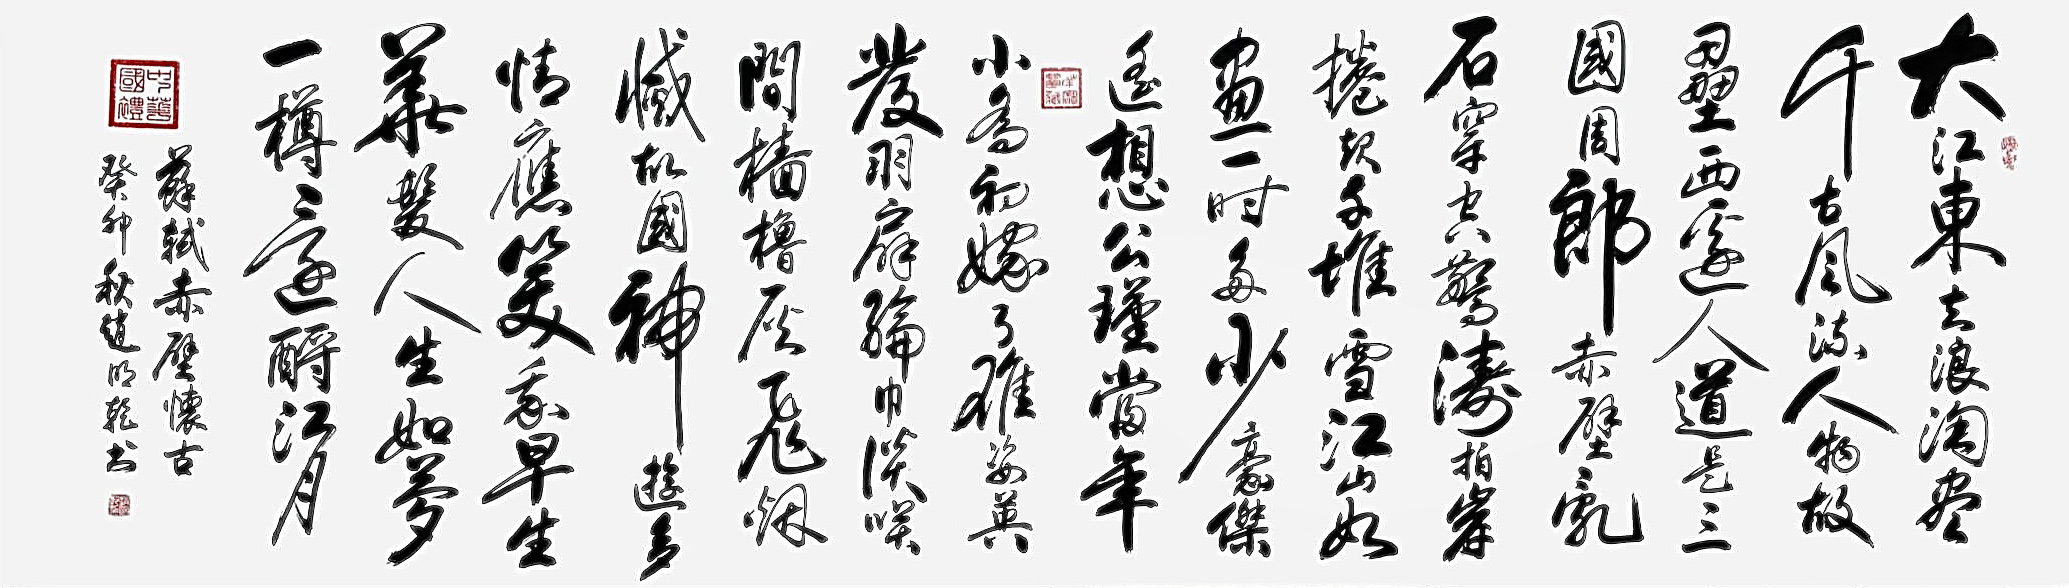 大江東去浪淘盡
千古風流人物故
壘西邊人道是三
國周郎赤壁亂
石穿空驚濤拍岸
捲起千堆雪江山如
畫一时多少豪傑
遙想公瑾當年
小喬初嫁了雄姿英
發羽扇綸巾談咲
間檣櫓灰飛烟
滅故國神遊多
情應笑我早生
華髮人生如夢
一樽還酹江月
蘇軾赤壁懷古
癸卯秋趙明乾书
中華國禮